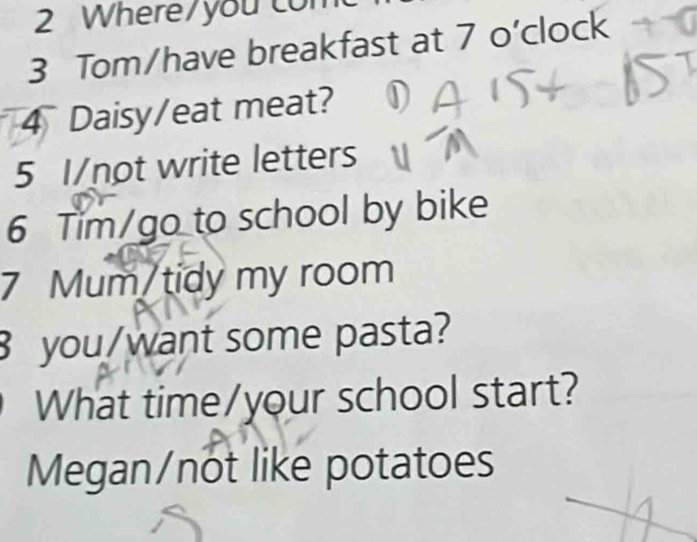 2 Where/you
3 Tom/have breakfast at 7 o'clock
4 Daisy/eat meat?
5 I/not write letters
6 Tim/go to school by bike
7 Mum/tidy my room
you/want some pasta?
What time/your school start?
Megan/not like potatoes